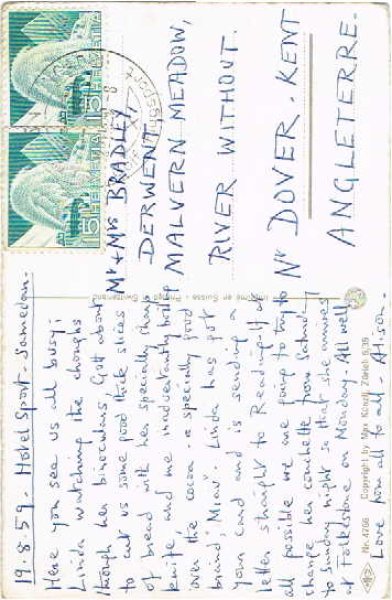 19.8.59. Hotel Sport - Samedan.
Here you see us all busy;
Linda watching the
through her binoculars, Gott about
to cut us some good thick slices
of bread with her specially sharp
knife and me inadvertently boiling
over the cocoa - a specially good
brand, 'Miaw'. Linda has got
your card and is sending a
letter straight to Reading. If at
all possible we are going to try to
change her couchette from Saturday
to Sunday night so that she arrives
at Folkestone on Monday. All well
love from all to all
Mr & Mrs BRADLEY,
DERWENT,
MALVERN MEADOW,
RIVER WITHOUT.
Nr DOVER. KENT
ANGLETERRE.
Imprimé en Suisse - Printed in Switzerland
Nr. 4766 Copyright by Max Künzli, Zürich 6/39
HELVETIA
15
HELVETIA
15